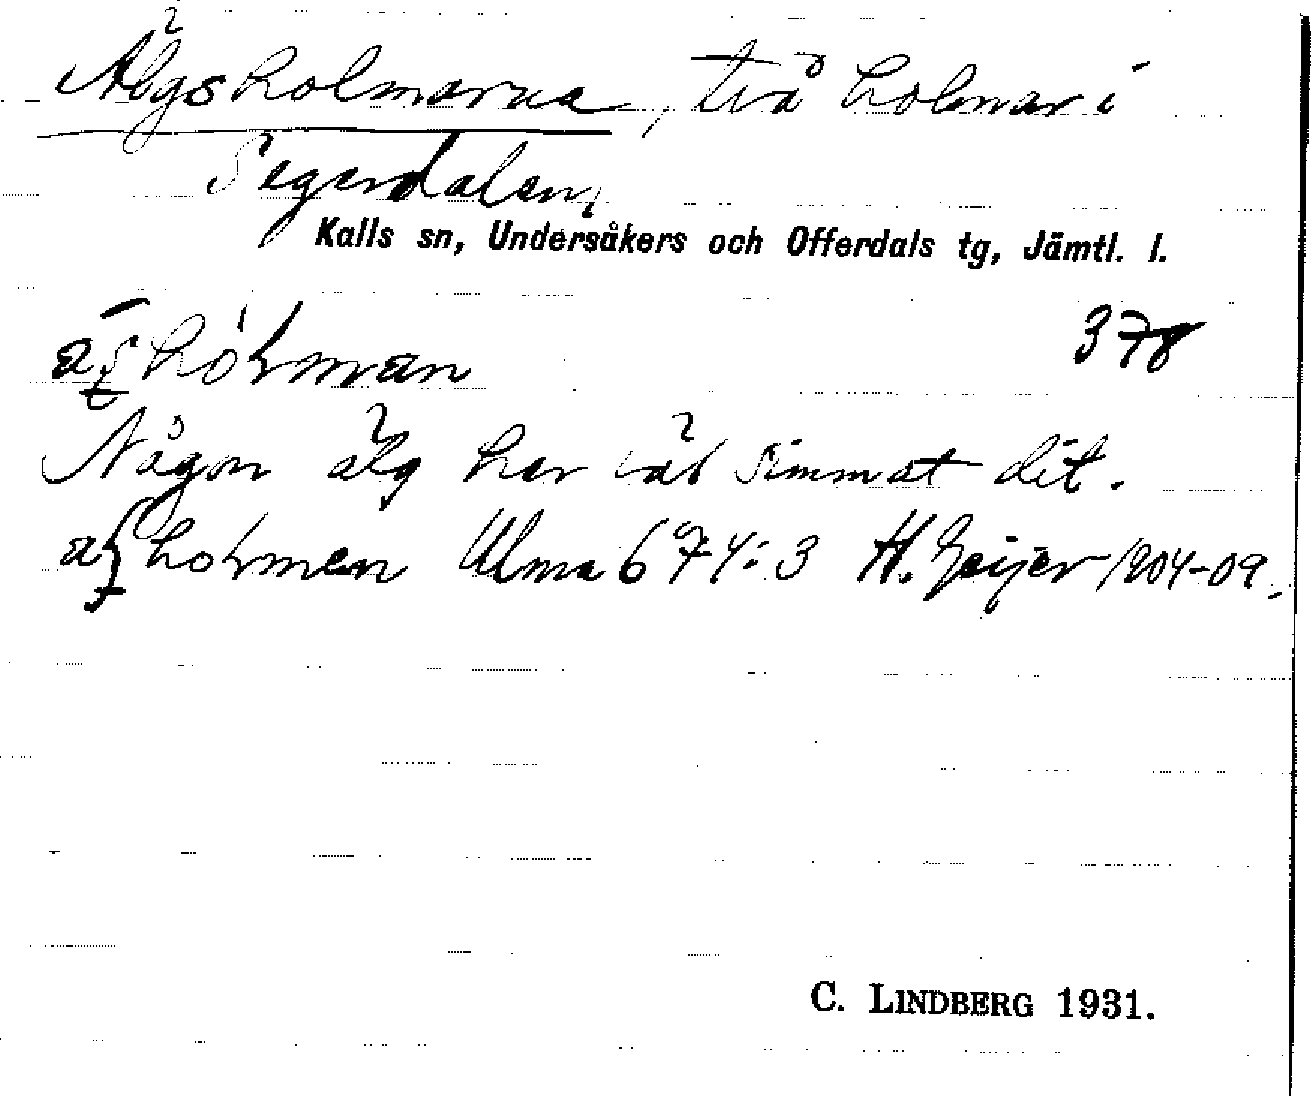 Älgsholmarna, två holmar i
Segerdalen,
Kalls sn, Undersåkers och Offerdals tg, Jämtl. l.
378
Någon älg har väl simmat dit.
Ulma 674:3 H. Geijer 1904-09.
C. LINDBERG 1931.